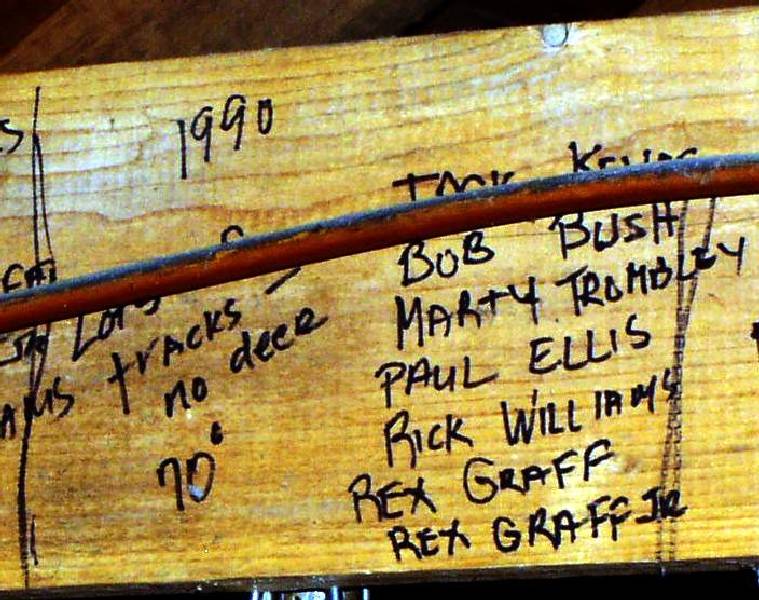 1990
Lots
tracks -
no deer
70°
BOB BUSH
MARTY TROMBLEY
PAUL ELLIS
RICK WILLIAMS
REX GRAFF
REX GRAFF JR